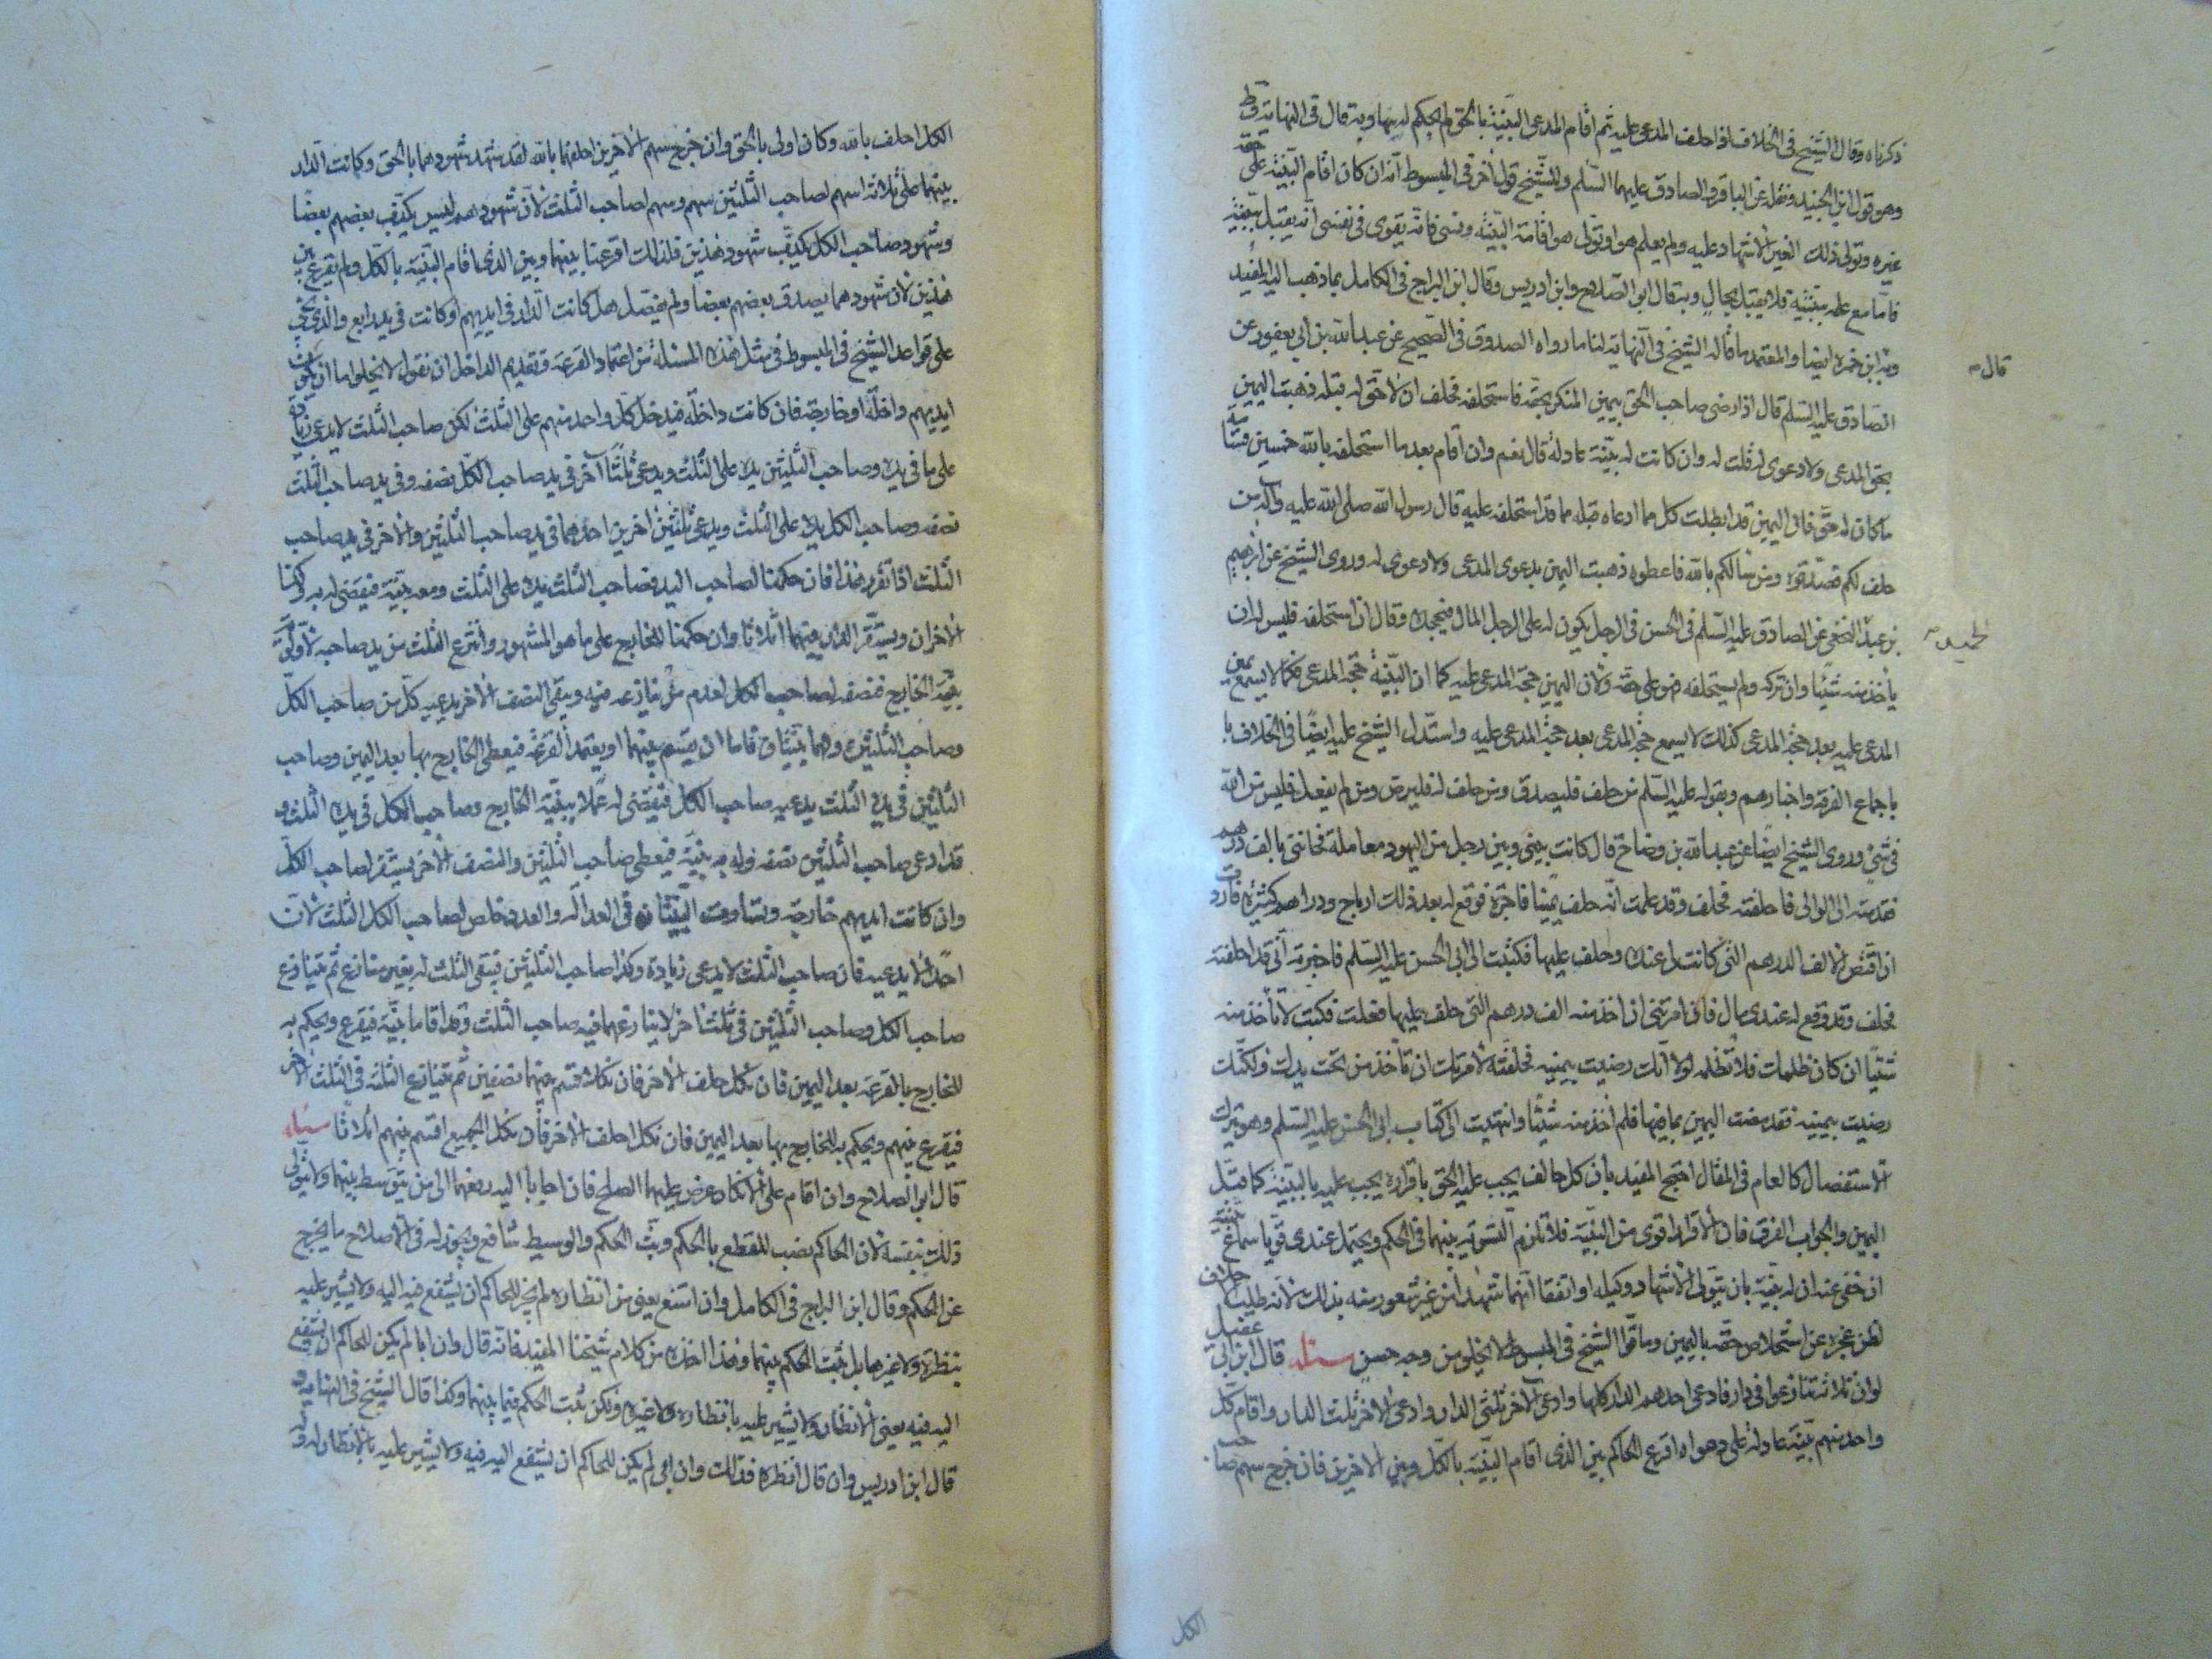 ذكرناه وقال الشيخ في الخلاف اذا حلف المدعى عليه ثم اقام المدعى البينة بالحق لم يحكم له بها وبه قال في النهاية
وهو قول ابن الجنيد ونقله عن الباقر والصادق عليهما السلم وللشيخ قول اخر في المبسوط انه ان كان اقام البينة على حقه
غيره وتولى ذلك الغير الاشهاد عليه ولم يعلم هو او تولى هو اقامة البينة ونسى فانه يقوى في نفسى انه يقبل بينته
فاما مع علمه ببينته فلا يقبل بحال وبه قال ابو الصلاح وابن ادريس وقال ابن البراج في الكامل بما ذهب اليه المفيد
وبه ابن حمزة ايضا والمعتمد ما قاله الشيخ في النهاية لنا ما رواه الصدوق في الصحيح عن عبد الله بن ابي يعفور عن
قال
الصادق عليه السلم قال اذا رضى صاحب الحق بيمين المنكر بحقه فاستحلفه فحلف ان لا حق له قبله ذهبت اليمين
بحق المدعى ولا دعوى له قلت له وان كانت له بينة عادلة قال نعم وان اقام بعد ما استحلفه بالله خمسين قسامة
ما كان له حق فان اليمين قد ابطلت كل ما ادعاه قبله مما قد استحلفه عليه قال رسول الله صلى الله عليه واله من
حلف لكم فصدقوه ومن سالكم بالله فاعطوه ذهبت اليمين بدعوى المدعى ولا دعوى له وروى الشيخ عن ابرهيم
بن عبد النخعي عن الصادق عليه السلم في الحسن في الرجل يكون له على الرجل المال فيجحده وقال ان استحلفه فليس له ان
الحميد
ياخذ منه شيئا وان تركه ولم يستحلفه فهو على حقه ولان اليمين حجة المدعى عليه كما ان البينة حجة المدعى فكما لا يسمع يمين
المدعى عليه بعد حجة المدعى كذلك لا يسمع حجة المدعى بعد حجة المدعى عليه واستدل الشيخ عليه ايضا في الخلاف با
باجماع الفرقة واخبارهم وبقوله عليه السلم من حلف فليصدق ومن حلف له فليرض ومن لم يفعل فليس من الله
في شئ وروى الشيخ ايضا عن عبد الله بن وضاح قال كانت بيني وبين رجل من اليهود معاملة فخانني بالف درهم
فقدمته الى الوالى فاحلفته فحلف وقد علمت انه حلف يمينا فاجرة فوقع له بعد ذلك ارباح ودراهم كثيرة فاردت
ان اقتص الالف الدرهم التي كانت له عندى وحلف عليها فكتبت الى ابي الحسن عليه السلم فاخبرته اني قد احلفته
فحلف وقد وقع له عندى مال فان امرتني ان اخذ منه الف درهم التي حلف عليها فعلت فكتب لا تاخذ منه
شيئا ان كان ظلمك فلا تظلمه لولا انك رضيت بيمينه فحلفته لامرتك ان تاخذ من تحت يدك ولكنك
رضيت بيمينه فقد مضت اليمين بما فيها فلم اخذ منه شيئا وانتهيت الى كتاب ابي الحسن عليه السلم وهو يترك
الاستفصال كالعام في المقال احتج المفيد بان كل حالف يجب عليه الحق باقراره يجب عليه بالبينة كما قبل
اليمين والجواب الفرق فان الاقرار اقوى من البينة فلا تلزم التسوية بينهما في الحكم ويحتمل عندى قويا سماع بينته
ان خفى عنه ان له بينة بان يتولى الاشهاد وكيله او اتفقا انهما شهدا من غير شعور منه بذلك لانه طلب احلاف
لظن عجزه عن استخلاص حقه باليمين وما قوا الشيخ في المبسوط لا يخلو من وجه حسن مسئلة قال ابن ابي عقيل
لو ان ثلاثة تنازعوا في دار فادعى احدهم الدار كلها وادعى الاخر ثلثى الدار وادعى الاخر ثلث الدار واقام كل
واحد منهم بينة عادلة على دعواه اقرع الحاكم بين الذى اقام البينة بالكل وبين الاخرين فان خرج سهم صاحب
الكل
الكل احلف بالله وكان اولى بالحق وان خرج سهم الاخرين احلفهما بالله لقد شهد شهودهما بالحق وكانت الدار
بينهما على ثلاثة اسهم لصاحب الثلثين سهم وسهم لصاحب الثلث لان شهودهم ليس يكذب بعضهم بعضا
وشهود صاحب الكل يكذب شهود هذين فلذلك اقرعنا بينهما وبين الذى اقام البينة بالكل ولم يقرع بين
هذين لان شهودهما يصدق بعضهم بعضا ولم يفصل هل كانت الدار في ايديهم او كانت في يد رابع والذى يجئ
على قواعد الشيخ في المبسوط في مثل هذه المسئلة من اعتماد القرعة وتقديم الداخل ان نقول لا يخلوا ما ان يكون
ايديهم داخلة او خارجة فان كانت داخلة فيد خل كل واحد منهم على الثلث لكن صاحب الثلث لا يدعى زيادة
على ما في يده وصاحب الثلثين يده على الثلث ويدعى ثلثا اخر في يد صاحب الكل نصفه وفي يد صاحب الثلث
نصفه وصاحب الكل يده على الثلث ويدعى ثلثين اخرين احدهما في يد صاحب الثلثين والاخر في يد صاحب
الثلث اذا تقرر هذا فان حكمنا لصاحب اليد فصاحب الثلث يده على الثلث ومعه بينة فيقضى له به وكذا
الاخران ويستقر الدار بينهما اثلاثا وان حكمنا للخارج على ما هو المشهور وانتزع الثلث من يد صاحبه لاولوية
بينة الخارج فنصفه لصاحب الكل لعدم من ينازعه فيه ويبقى النصف الاخر يدعيه كل من صاحب الكل
وصاحب الثلثين وهما بينتان فاما ان يقسم بينهما او يعتمد القرعة فيعطى الخارج بها بعد اليمين وصاحب
الثلثين في يده الثلث يدعيه صاحب الكل فيقضى له عملا ببينة الخارج وصاحب الكل في يده الثلث و
قد ادعى صاحب الثلثين نصفه وله به بينة فيعطى صاحب الثلثين والنصف الاخر يستقر لصاحب الكل
وان كانت ايديهم خارجة وتساوت البينتان في العدالة والعدد خاص لصاحب الكل الثلث لان
احدا لا يدعيه فان صاحب الثلث لا يدعى زيادة وكذا صاحب الثلثين فيبقى الثلث له بغير منازع ثم تنازع
صاحب الكل وصاحب الثلثين في ثلث اخر لا ينازعهما فيه صاحب الثلث وقد اقاما بينة فيقرع ويحكم به
للخارج بالقرعة بعد اليمين فان نكل حلف الاخر فان نكلا قسم بينهما نصفين ثم تنازع الثلثة في الثلث الاخر
فيقرع بينهم ويحكم به للخارج بها بعد اليمين فان نكل احلف الاخر فان نكل الجميع اقسم بينهم اثلاثا مسئلة
قال ابو الصلاح وان اقام على الانكار عرض عليهما الصلح فان اجابا اليه رفعهما الى من يتوسط بينهما ولا يتولى
ذلك بنفسه لان الحاكم نصب للقطع بالحكم وبت الحكم والوسيط شافع ويجوز له في الاصلاح ما يخرج
عن الحكم وقال ابن البراج في الكامل وان امتنع يعنى من انظاره لم يجز للحاكم ان يشفع فيه اليه ولا يشير عليه
بنظرة ولا غيرها بل يثبت الحكم بينهما وهذا اخذه من كلام شيخنا المفيد فانه قال وان ابا لم يكن للحاكم ان يشفع
اليه فيه يعنى الانظار ولا يشير عليه بانظاره ولا غيره ولكن يثبت الحكم فيما بينهما وكذا قال الشيخ في النهاية و
قال ابن ادريس وان قال انظره فذلك وان ابي لم يكن للحاكم ان يشفع اليه فيه ولا يشير عليه بالانظار له و